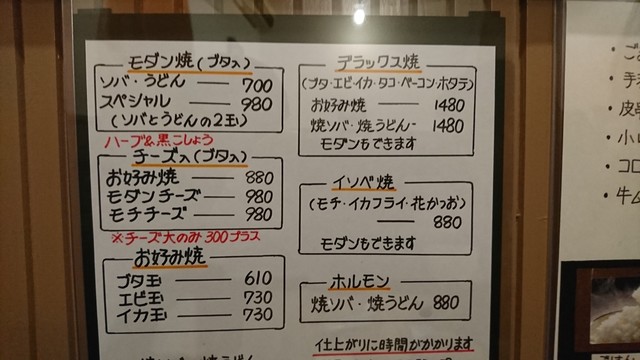 モダン焼(ブタ入)
ソバ・うどん ― 700
スペシャル ― 980
(ソバとうどんの2玉)
ハーブ&黒こしょう
チーズ入(ブタ入)
お好み焼 ― 880
モダンチーズ ― 980
モチチーズ ― 980
※チーズ大のみ300プラス
お好み焼
ブタ玉 ― 610
エビ玉 ― 730
イカ玉 ― 730
デラックス焼
(ブタ・エビイカ・タコ・ベーコン・ホタテ)
お好み焼 ― 1480
焼ソバ・焼うどん- 1480
モダンもできます
イソベ焼
(モチ・イカフライ・花かつお)
― 880
モダンもできます
ホルモン
焼ソバ・焼うどん 880
仕上がりに時間がかかります
・手
・皮
・小
・コロ
・牛